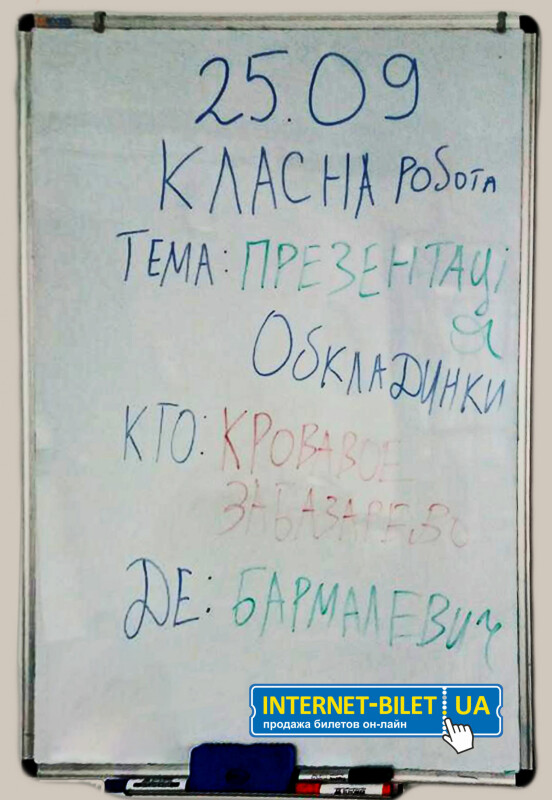 25.09
КЛАСНА РОБОТА
ТЕМА: ПРЕЗЕНТАЦІ
Я
ОБКЛАДИНКИ
КТО: КРОВАВОЕ
ЗАБАЗАРЕВО
ДЕ: БАРМАЛЕВИЧ
INTERNET-BILET UA
продажа билетов он-лайн